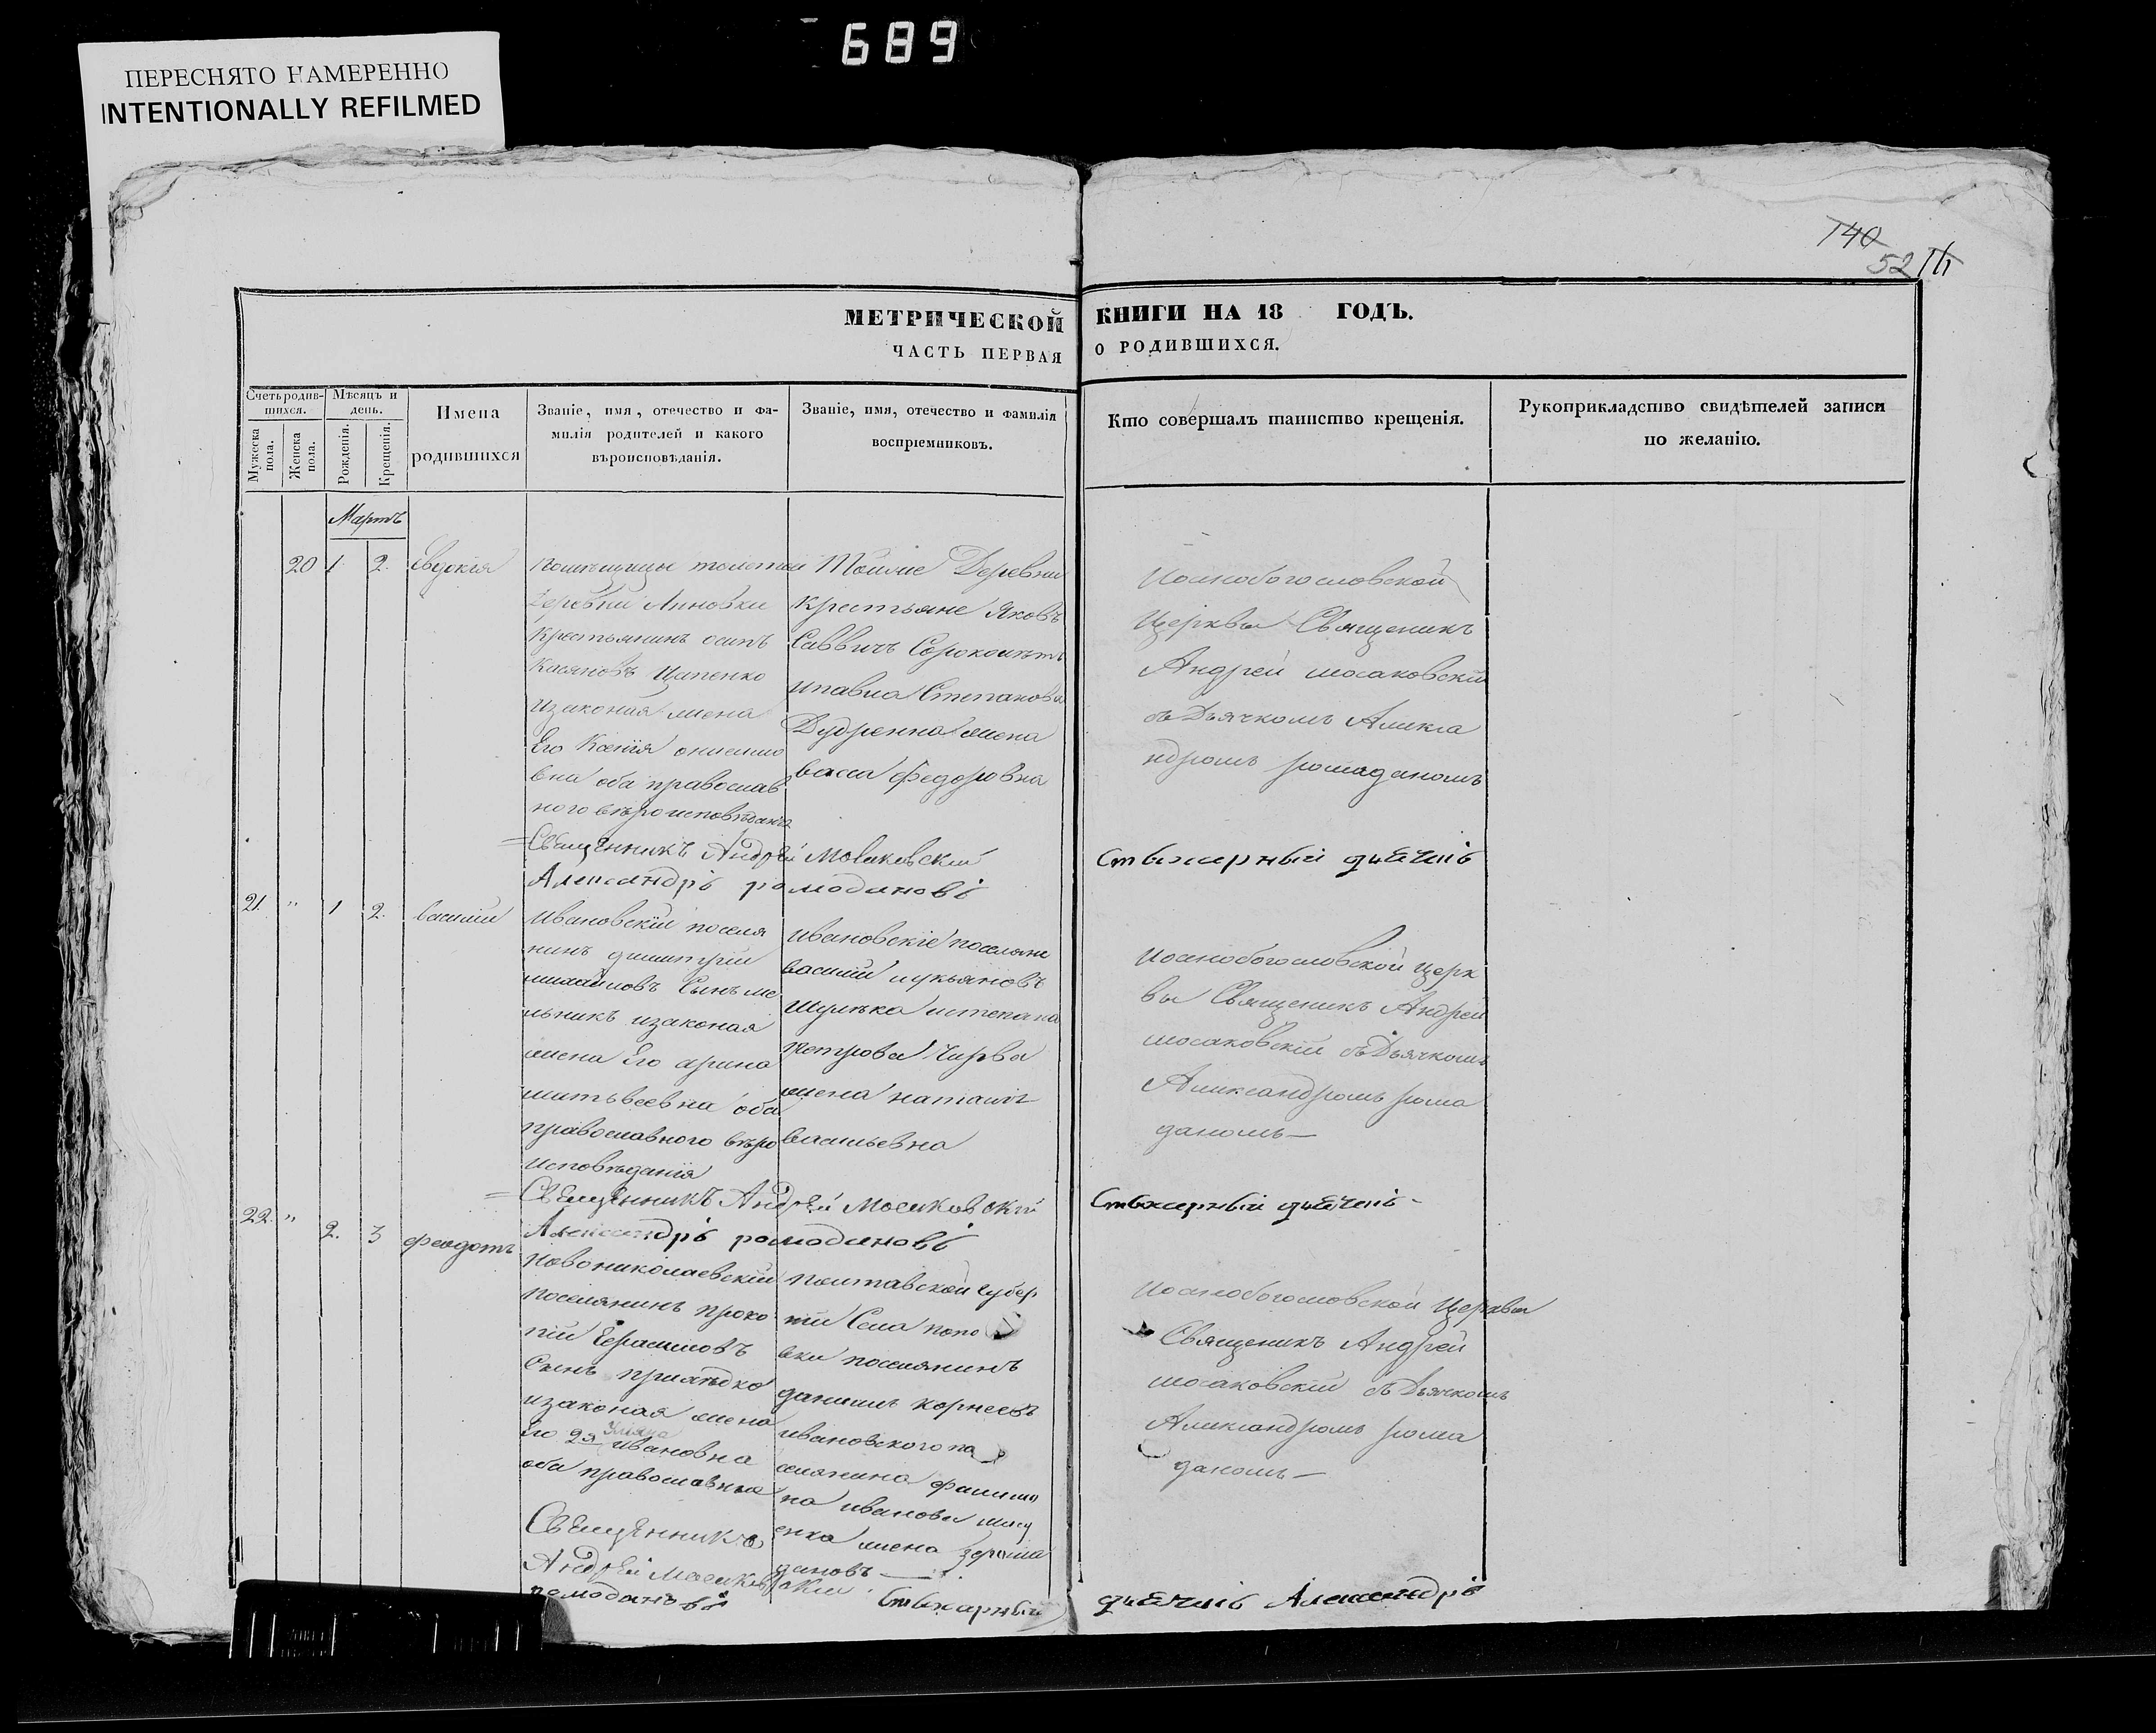 689
ПЕРЕСНЯТО НАМЕРЕННО
INTENTIONALLY REFILMED
140
52
МЕТРИЧЕСКОЙ КНИГИ НА 18 ГОДЪ.
ЧАСТЬ ПЕРВАЯ О РОДИВШИХСЯ.
Счетъ родившихся.
Мужеска пола.
Женска пола.
Мѣсяцъ и день.
Рожденія.
Крещенія.
Имена
родившихся
Званіе, имя, отечество и фа-
милія родителей и какого
вѣроисповѣданія.
Званіе, имя, отечество и фамилія
воспріемниковъ.
Кто совершалъ таинство крещенія.
Рукоприкладство свидѣтелей записи
по желанію.
Мартъ
20 1 2. Евдокія
Помѣщицы толстой
Деревни Анновки
Крестьянинъ осипъ
Касяновъ Цапенко
изаконая жена
Его Ксенія онисимо
вна оба православ
ного вѣроисповѣданія
Тойже Деревни
крестьяне Яковъ
Саввичъ
ипавла Степанова
жена
васса федоровна
Иоанобогословской
Церквы Священикъ
Андрей мосаковскій
съ Дьячкомъ Алекса
ндромъ ромаданомъ
Священникъ Андрей Мосаковскій
Стихарный дьячокъ
Александръ ромодановъ
21. " 1 2. василій
Ивановскій поселя
нинъ димитрій
михайловъ Сынъ ме
льникъ изаконая
жена Его арина
матьвеевна оба
православного вѣро
исповѣданія
ивановскіе поселяне
василій лукьяновъ
Шулька истепана
петрова Чирва
жена наталія
васильевна
Иоанобогословской церк
вы Священикъ Андрей
мосаковскій съ Дьячкомъ
Александромъ рома
даномъ—
Священникъ Андрей Мосаковскій
Стихарный дьячокъ
Александръ ромодановъ
22. " 2. 3 феодотъ
Новониколаевскій
поселянинъ проко
пій Герасимовъ
Сынъ
изаконая жена
Его 2я Ивановна
оба православныя
полтавской губер
ніи Села попо
вки поселянинъ
данилъ корнеевъ
ивановского по
селянина филип
па иванова
енка жена
Иоанобогословской Церквы
Священикъ Андрей
мосаковскій съ Дьячкомъ
Александромъ рома
даномъ—
Священникъ
Андрей Мосаковскій
Стихарный дьячокъ Александръ
ромодановъ